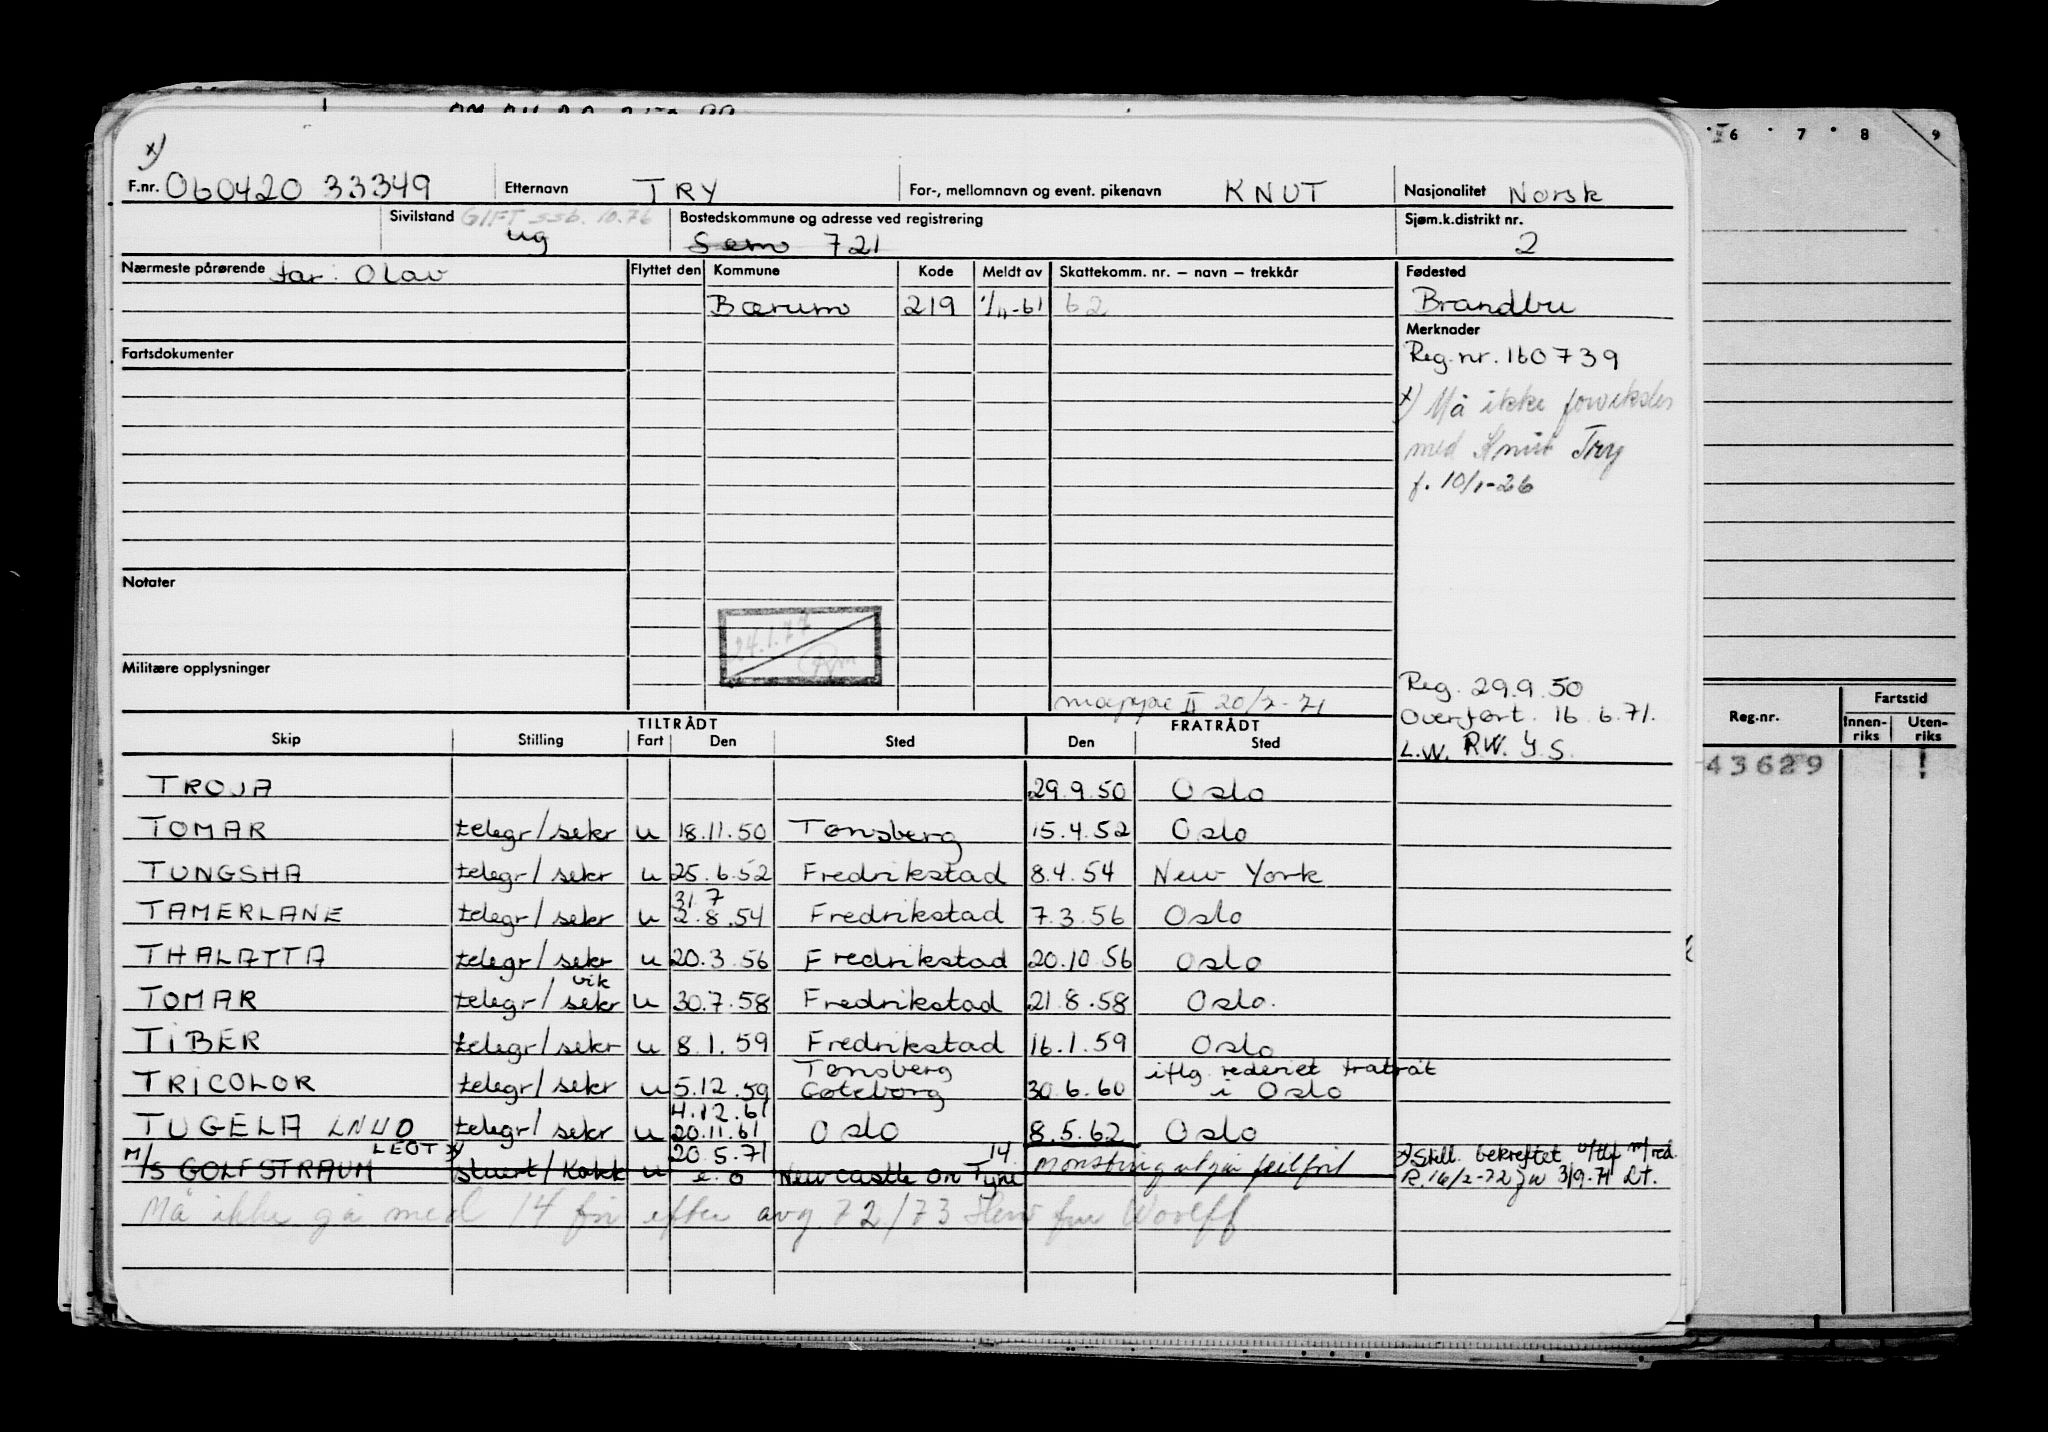 x)
F.nr. 060420 33349 Etternavn TRY For-, mellomnavn og event. pikenavn KNUT Nasjonalitet Norsk
Sivilstand GIFT SSB. 10.76 ug Bostedskommune og adresse ved registrering Sem 721 Sjøm.k.distrikt nr. 2
Nærmeste pårørende far: Olav Flyttet den Kommune Kode Meldt av Skattekomm. nr. – navn – trekkår Fødested
Bærum 219 1/11-61 62 Brandbu
Merknader
Fartsdokumenter Reg.nr. 160739
x) Må ikke forveksles
med Knut Try
f. 10/1-26
Notater
24.1.77
Militære opplysninger
Reg. 29.9.50
mappe II 20/7-71
Overført. 16.6.71.
L.W. RW. Y.S.
TILTRÅDT FRATRÅDT
Skip Stilling Fart Den Sted Den Sted
TROJA 29.9.50 Oslo
TOMAR telegr/sekr u 18.11.50 Tønsberg 15.4.52 Oslo
TUNGSHA telegr/sekr u 25.6.52 Fredrikstad 8.4.54 New York
31.7
TAMERLANE telegr/sekr u 2.8.54 Fredrikstad 7.3.56 Oslo
THALATTA telegr/sekr u 20.3.56 Fredrikstad 20.10.56 Oslo
vik
TOMAR telegr/sekr u 30.7.58 Fredrikstad 21.8.58 Oslo.
TIBER telegr/sekr u 8.1.59 Fredrikstad 16.1.59 Oslo
Tønsberg iflg. rederiet fratrått
TRICOLOR telegr/sekr u 5.12.59 Gøteborg 30.6.60 i Oslo
4.12.61
TUGELA LNUD telegr/sekr u 20.11.61 Oslo 8.5.62 Oslo
LEOT x) 20.5.71 14
M/S GOLFSTRAUM stuert/Kokk u e.o Newcastle on Tyne Mønstring utgår feilført x) Still. bekreftet
R. 16/2-72
Må ikke gå med 14 før efter avg 72/73
6 7 8 9
Reg.nr. Fartstid
Innen-riks Uten-riks
43629